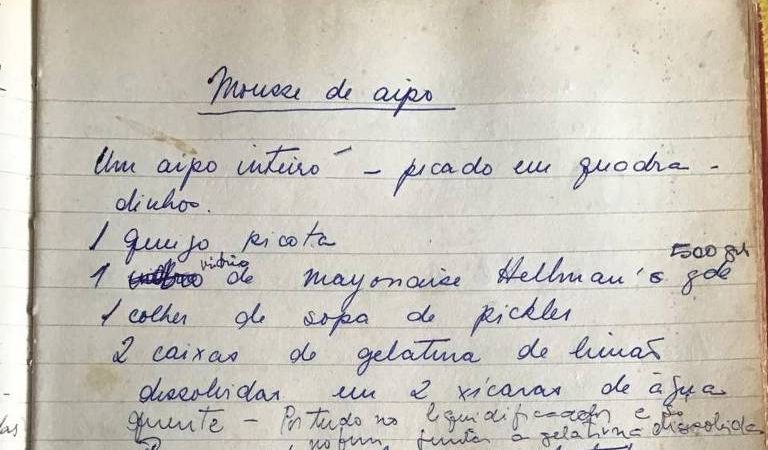 Mousse de aipo
Um aipo inteiro - picado em quadra-
dinhos.
1 queijo ricota
1 vidro de mayonaise Hellman's gde 500 gr
1 colher de sopa de pickles
2 caixas de gelatina de limão
dissolvidas em 2 xícaras de água
quente - Por tudo no liquidificador e só
no fim, juntar a gelatina dissolvida